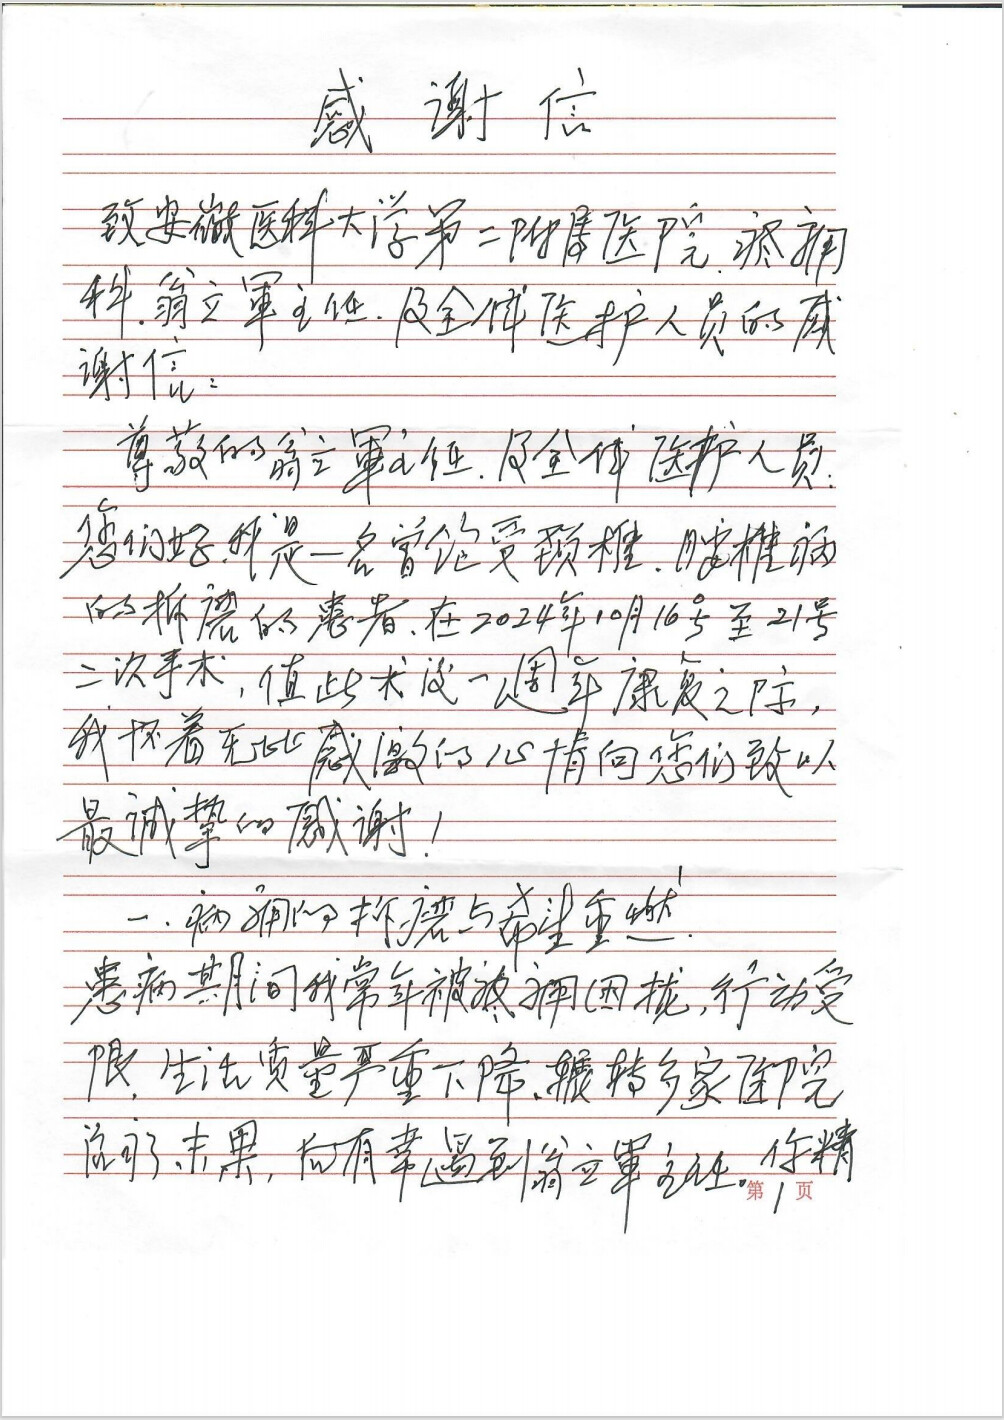 感谢信
致安徽医科大学第二附属医院.疼痛
科.翁立軍主任.及全体医护人员的感
谢信:
尊敬的翁立軍主任.及全体医护人员:
您们好.我是一名曾饱受颈椎.腰椎病
的折磨的患者.在2024年10月16号至21号
二次手术,值此术后一週年康复之际,
我怀着无比感激的心情向您们致以
最诚挚的感谢!
一.病痛的折磨与希望重燃.
患病期间我常年被疼痛困扰,行动受
限.生活质量严重下降.辗转多家医院
治疗未果,后有幸遇到翁立軍主任。你精
第1页